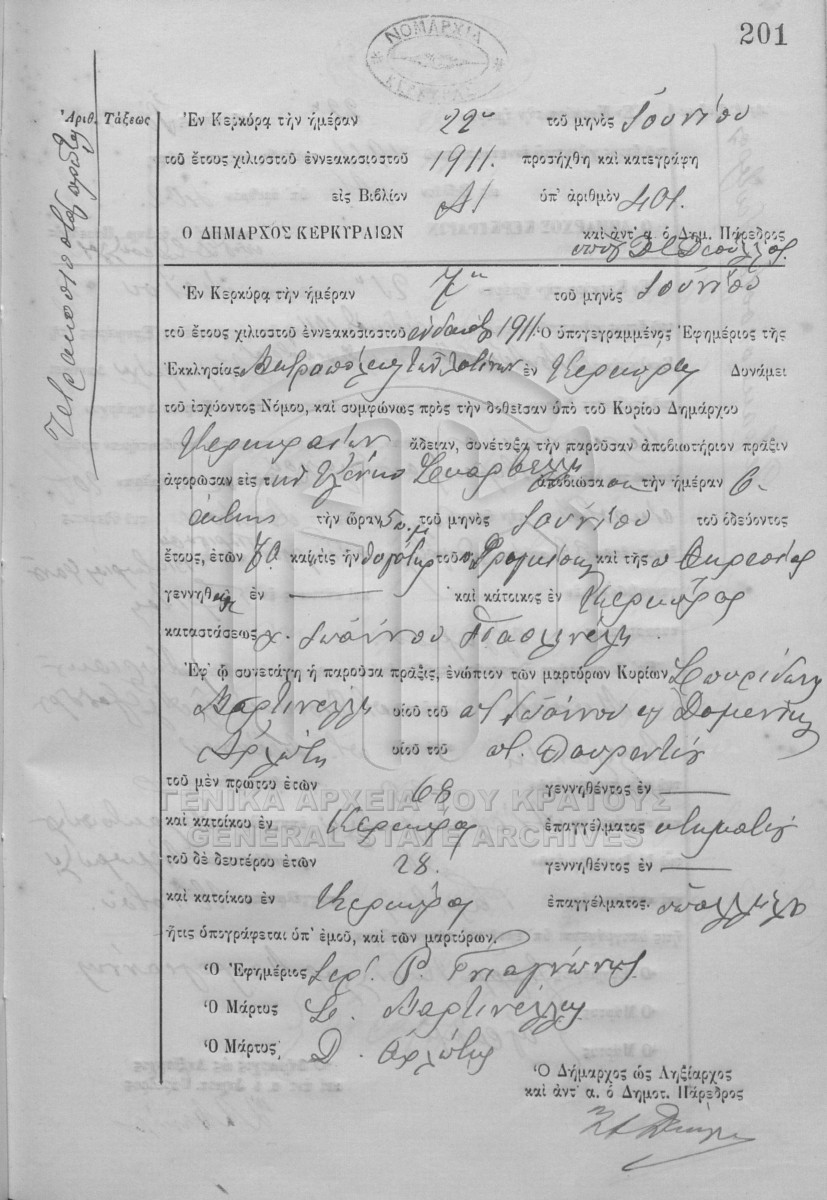 201
ΝΟΜΑΡΧΙΑ
ΚΕΡΚΥΡΑΣ
Ἀριθ. Τάξεως
Τετρακοσιοστὴ πρώτη
Ἐν Κερκύρᾳ τὴν ἡμέραν 22αν τοῦ μηνὸς Ἰουνίου
τοῦ ἔτους χιλιοστοῦ ἐννεακοσιοστοῦ 1911. προσήχθη καὶ κατεγράφη
εἰς Βιβλίον Α1 ὑπ' ἀριθμὸν 401.
Ο ΔΗΜΑΡΧΟΣ ΚΕΡΚΥΡΑΙΩΝ καὶ ἀντ' α. ὁ Δημ. Πάρεδρος
Ἐν Κερκύρᾳ τὴν ἡμέραν 7ην τοῦ μηνὸς Ἰουνίου
τοῦ ἔτους χιλιοστοῦ ἐννεακοσιοστοῦ ἑνδεκάτ 1911. Ὁ ὑπογεγραμμένος Ἐφημέριος τῆς
Ἐκκλησίας Μητροπόλεως τῶν Λατίνων ἐν Κερκύρᾳ Δυνάμει
τοῦ ἰσχύοντος Νόμου, καὶ συμφώνως πρὸς τὴν δοθεῖσαν ὑπὸ τοῦ Κυρίου Δημάρχου
Κερκυραίων ἄδειαν, συνέταξα τὴν παροῦσαν ἀποβιωτήριον πρᾶξιν
ἀφορῶσαν εἰς τὴν Ἑλένην ἀποβιώσασαν τὴν ἡμέραν 6
τὴν ὥραν 5 μ.μ. τοῦ μηνὸς Ἰουνίου τοῦ ὁδεύοντος
ἔτους, ἐτῶν 70 καὶ τις ἦν θυγάτηρ τοῦ π. Φραγκίσκου καὶ τῆς π.
γεννηθεῖσα ἐν — καὶ κάτοικος ἐν Κερκύρᾳ
καταστάσεως χ. Ἰωάννου
Ἐφ' ᾧ συνετάχη ἡ παροῦσα πρᾶξις, ἐνώπιον τῶν μαρτύρων Κυρίων Σπυρίδων
Μαρτινέλλη υἱοῦ τοῦ π. Ἰωάννου κ. Δομενίκου
Ἀρλώτη υἱοῦ τοῦ π. Λαυρεντίου
τοῦ μὲν πρώτου ἐτῶν 68 γεννηθέντος ἐν —
ΓΕΝΙΚΑ ΑΡΧΕΙΑ ΤΟΥ ΚΡΑΤΟΥΣ
καὶ κατοίκου ἐν Κερκύρᾳ ἐπαγγέλματος κτηματίου
GENERAL STATE ARCHIVES
τοῦ δὲ δευτέρου ἐτῶν 28. γεννηθέντος ἐν —
καὶ κατοίκου ἐν Κερκύρᾳ ἐπαγγέλματος. ὑπαλλήλου
ἥτις ὑπογράφεται ὑπ' ἐμοῦ, καὶ τῶν μαρτύρων.
Ὁ Ἐφημέριος Ἱερ. Ρ.
Ὁ Μάρτυς Σ. Μαρτινέλλης
Ὁ Μάρτυς Δ. Ἀρλώτης
Ὁ Δήμαρχος ὡς Ληξίαρχος
καὶ ἀντ' α. ὁ Δημοτ. Πάρεδρος